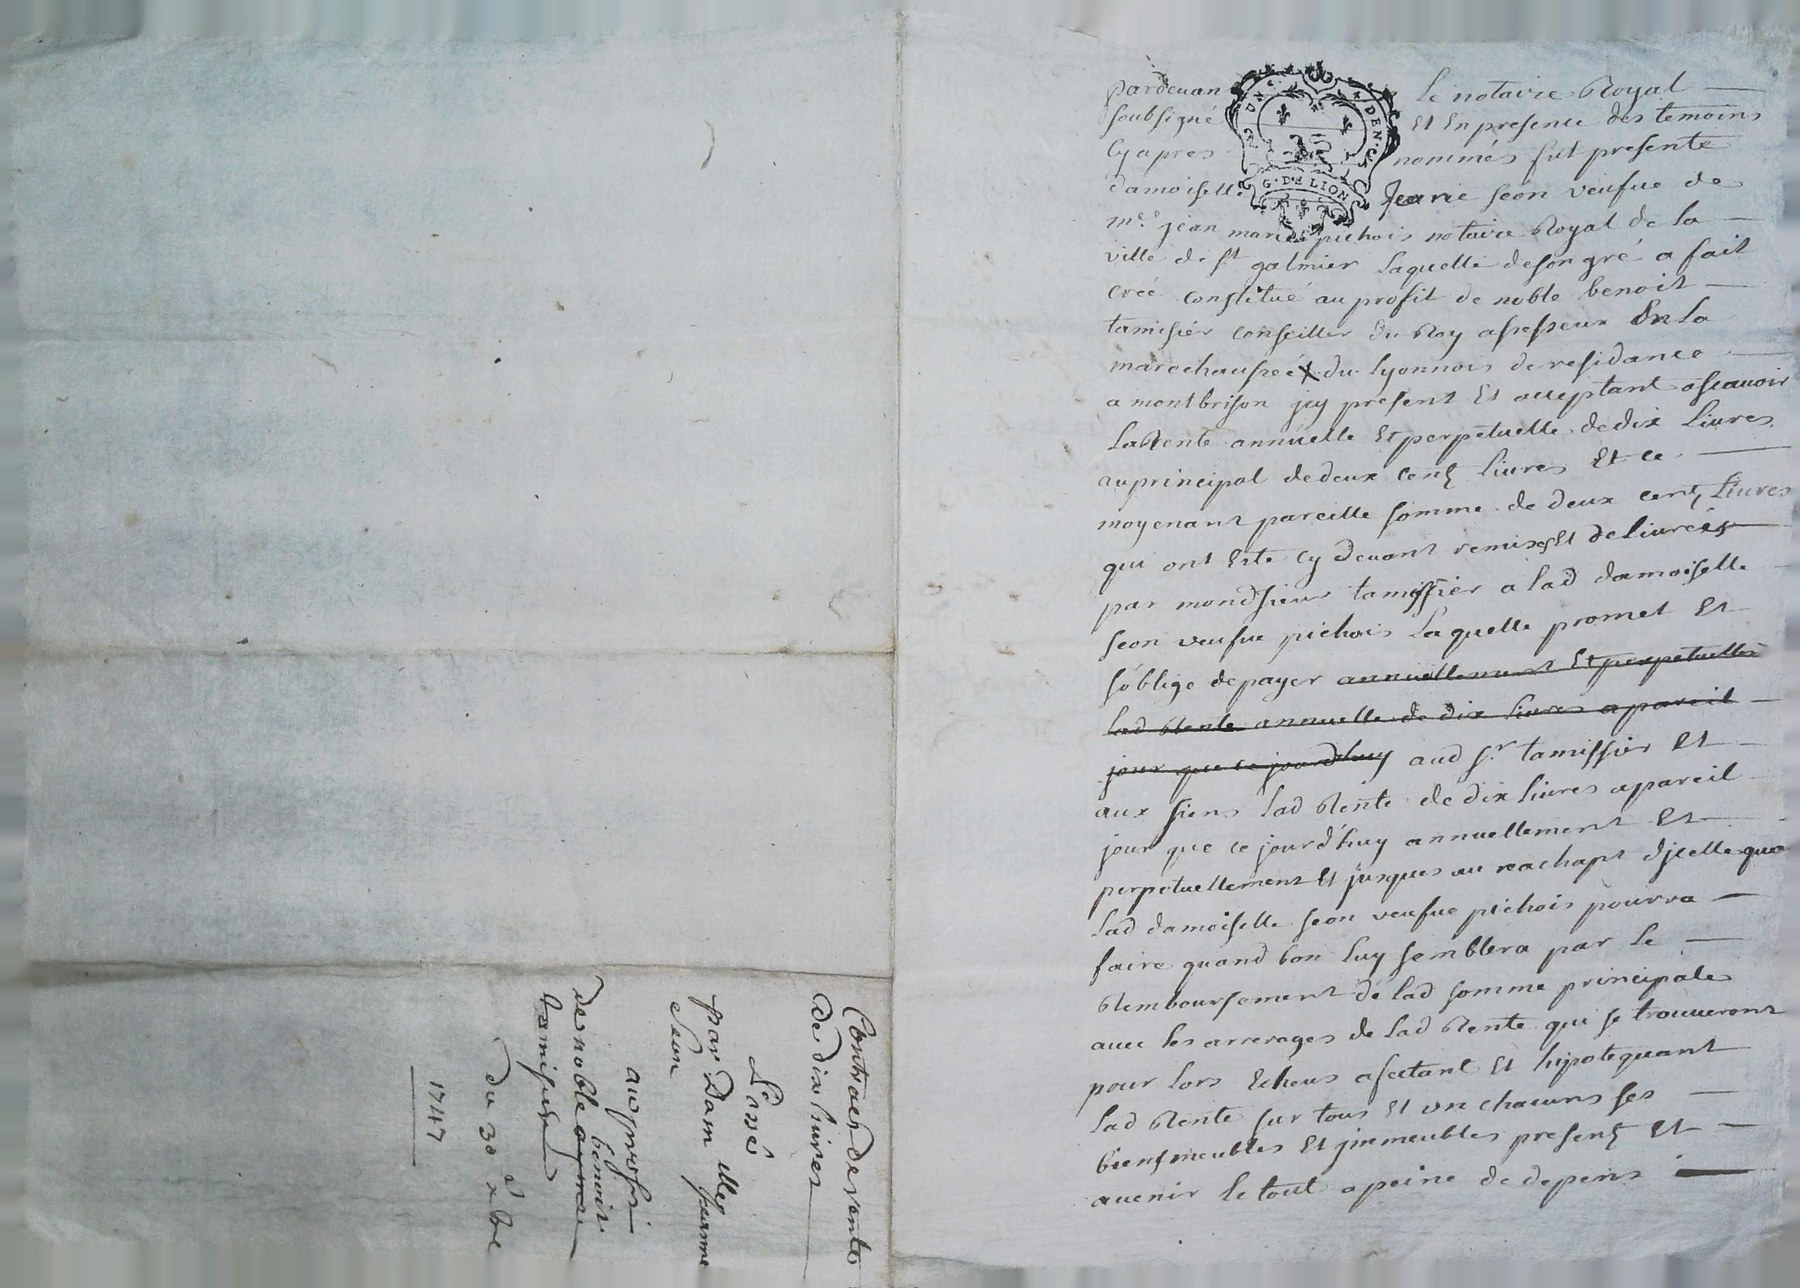 pardevan le notaire Royal
soubsigné Et En presence des temoins
Cy apres nommés fut presente
damoiselle Jeane seon veufue de
me. jean marie pichois notaire Royal de la
ville de st galmier laquelle de son gré a fait
creé constitué au profit de noble benoit
tamisiér conseiller du Roy assesseur En la
marechausseé du Lyonnois de residance
a montbrison jcy present Et acceptant ascauoir
La Rente annuelle Et perpetuelle de dix Liures
au principal de deux cent Liures Et ce
moyenant pareille somme de deux cent Liures
qui ont Esté cy deuant remises Et deliureés
par mondsieur tamissier a lad damoiselle
seon veufue pichois Laquelle promet Et
s'oblige de payer annuellement Et perpetuelle
lad Rente annuelle de dix liures a pareil
jour que ce jourd'huy aud sr. tamissier Et
aux siens lad Rente de dix liures a pareil
jour que ce jourd'huy annuellement Et
perpetuellement Et jusques au reachapt djcelle que
lad damoiselle seon veufue pichois pourra
faire quand bon luy semblera par le
Remboursement de lad somme principale
auec les arrerages de lad Rente qui se trouueront
pour lors Echeus afectant Et hipotequant
lad Rente sur tous Et un chacuns ses
biens meubles Et jmmeubles present Et
auenir le tout a peine de depens
G. DE LION
Contract de rente
de dix liures
Passé
par Dam elle jeanne
Seon
au profit
de noble benoit
tamisier
du 30 xbre
1747